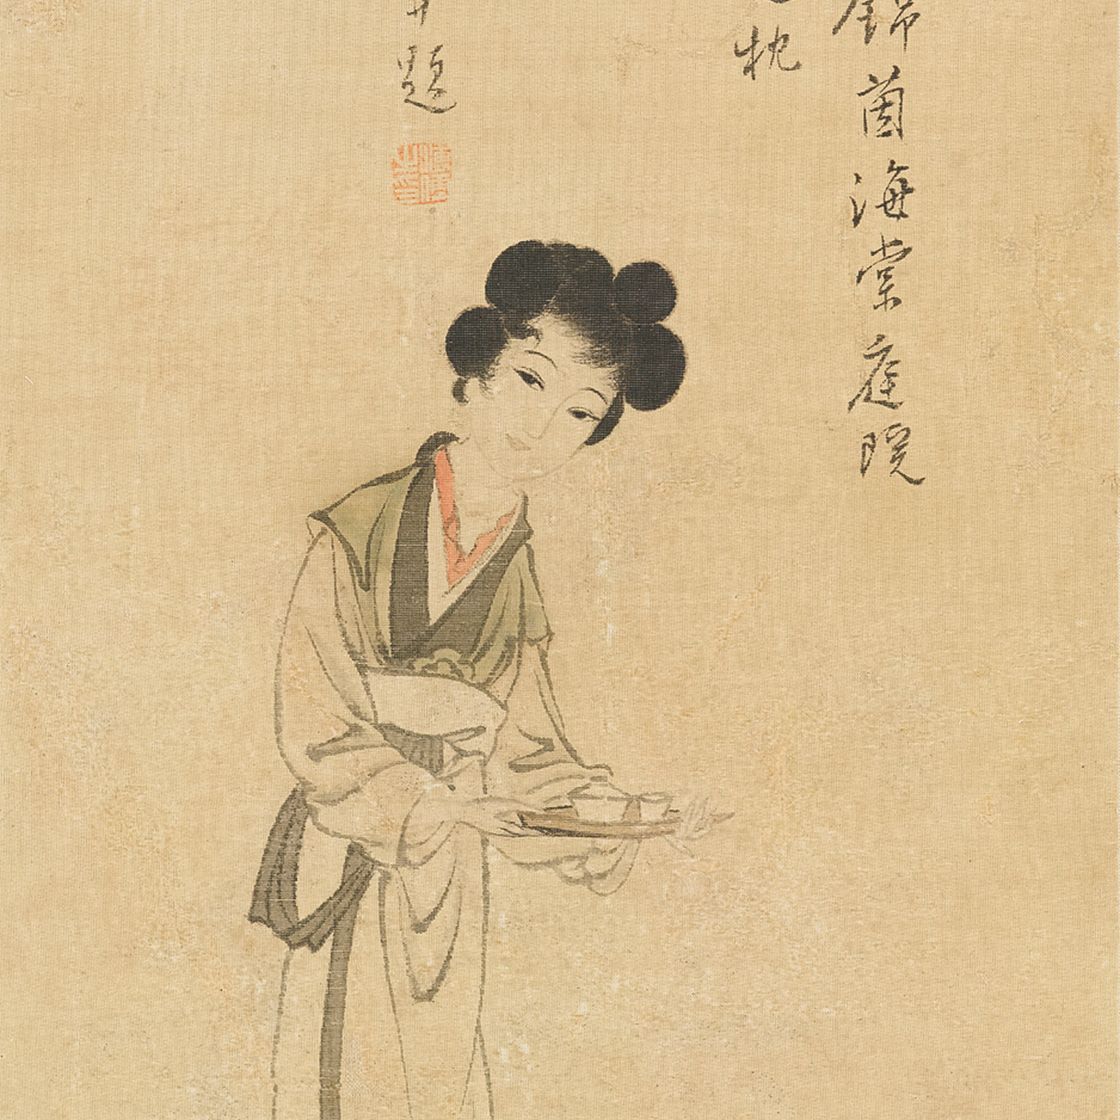 錦茵海棠庭院
枕
題